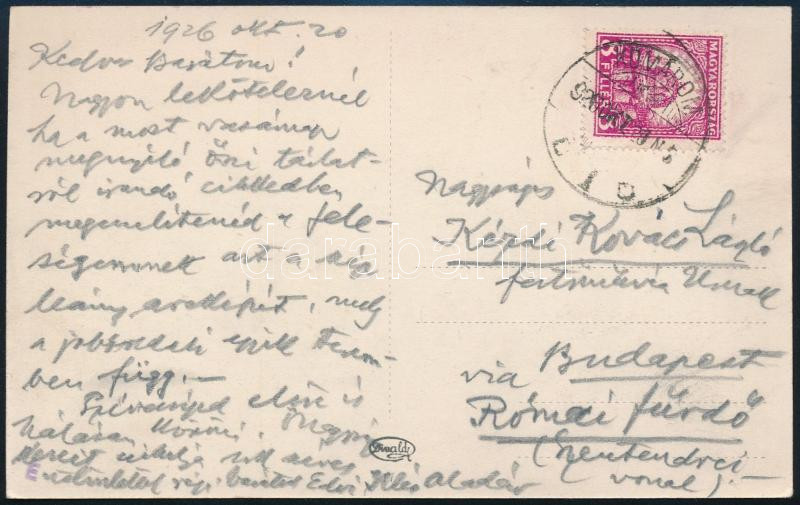 1926 okt. 20
Kedves Barátom!
Nagyon leköteleznél
ha a most vasárnap
megnyiló Őszi tárlat-
ról irandó cikkedben
megemlitenéd a fele-
ségemnek azt a szép
leány arcképét, mely
a jobboldali
ben függ.–
Szívességed előre is
hálásan köszöni. Nagyon
szives
régi barátod Edvi Illés Aladár
MAGYARORSZÁG
FILLÉR
KOMÁROM
Nagyságos
Kézdi Kovács László
festőművész Urnak
Budapest
via Római fürdő
(Szentendrei
vonal).–
darabanth.com